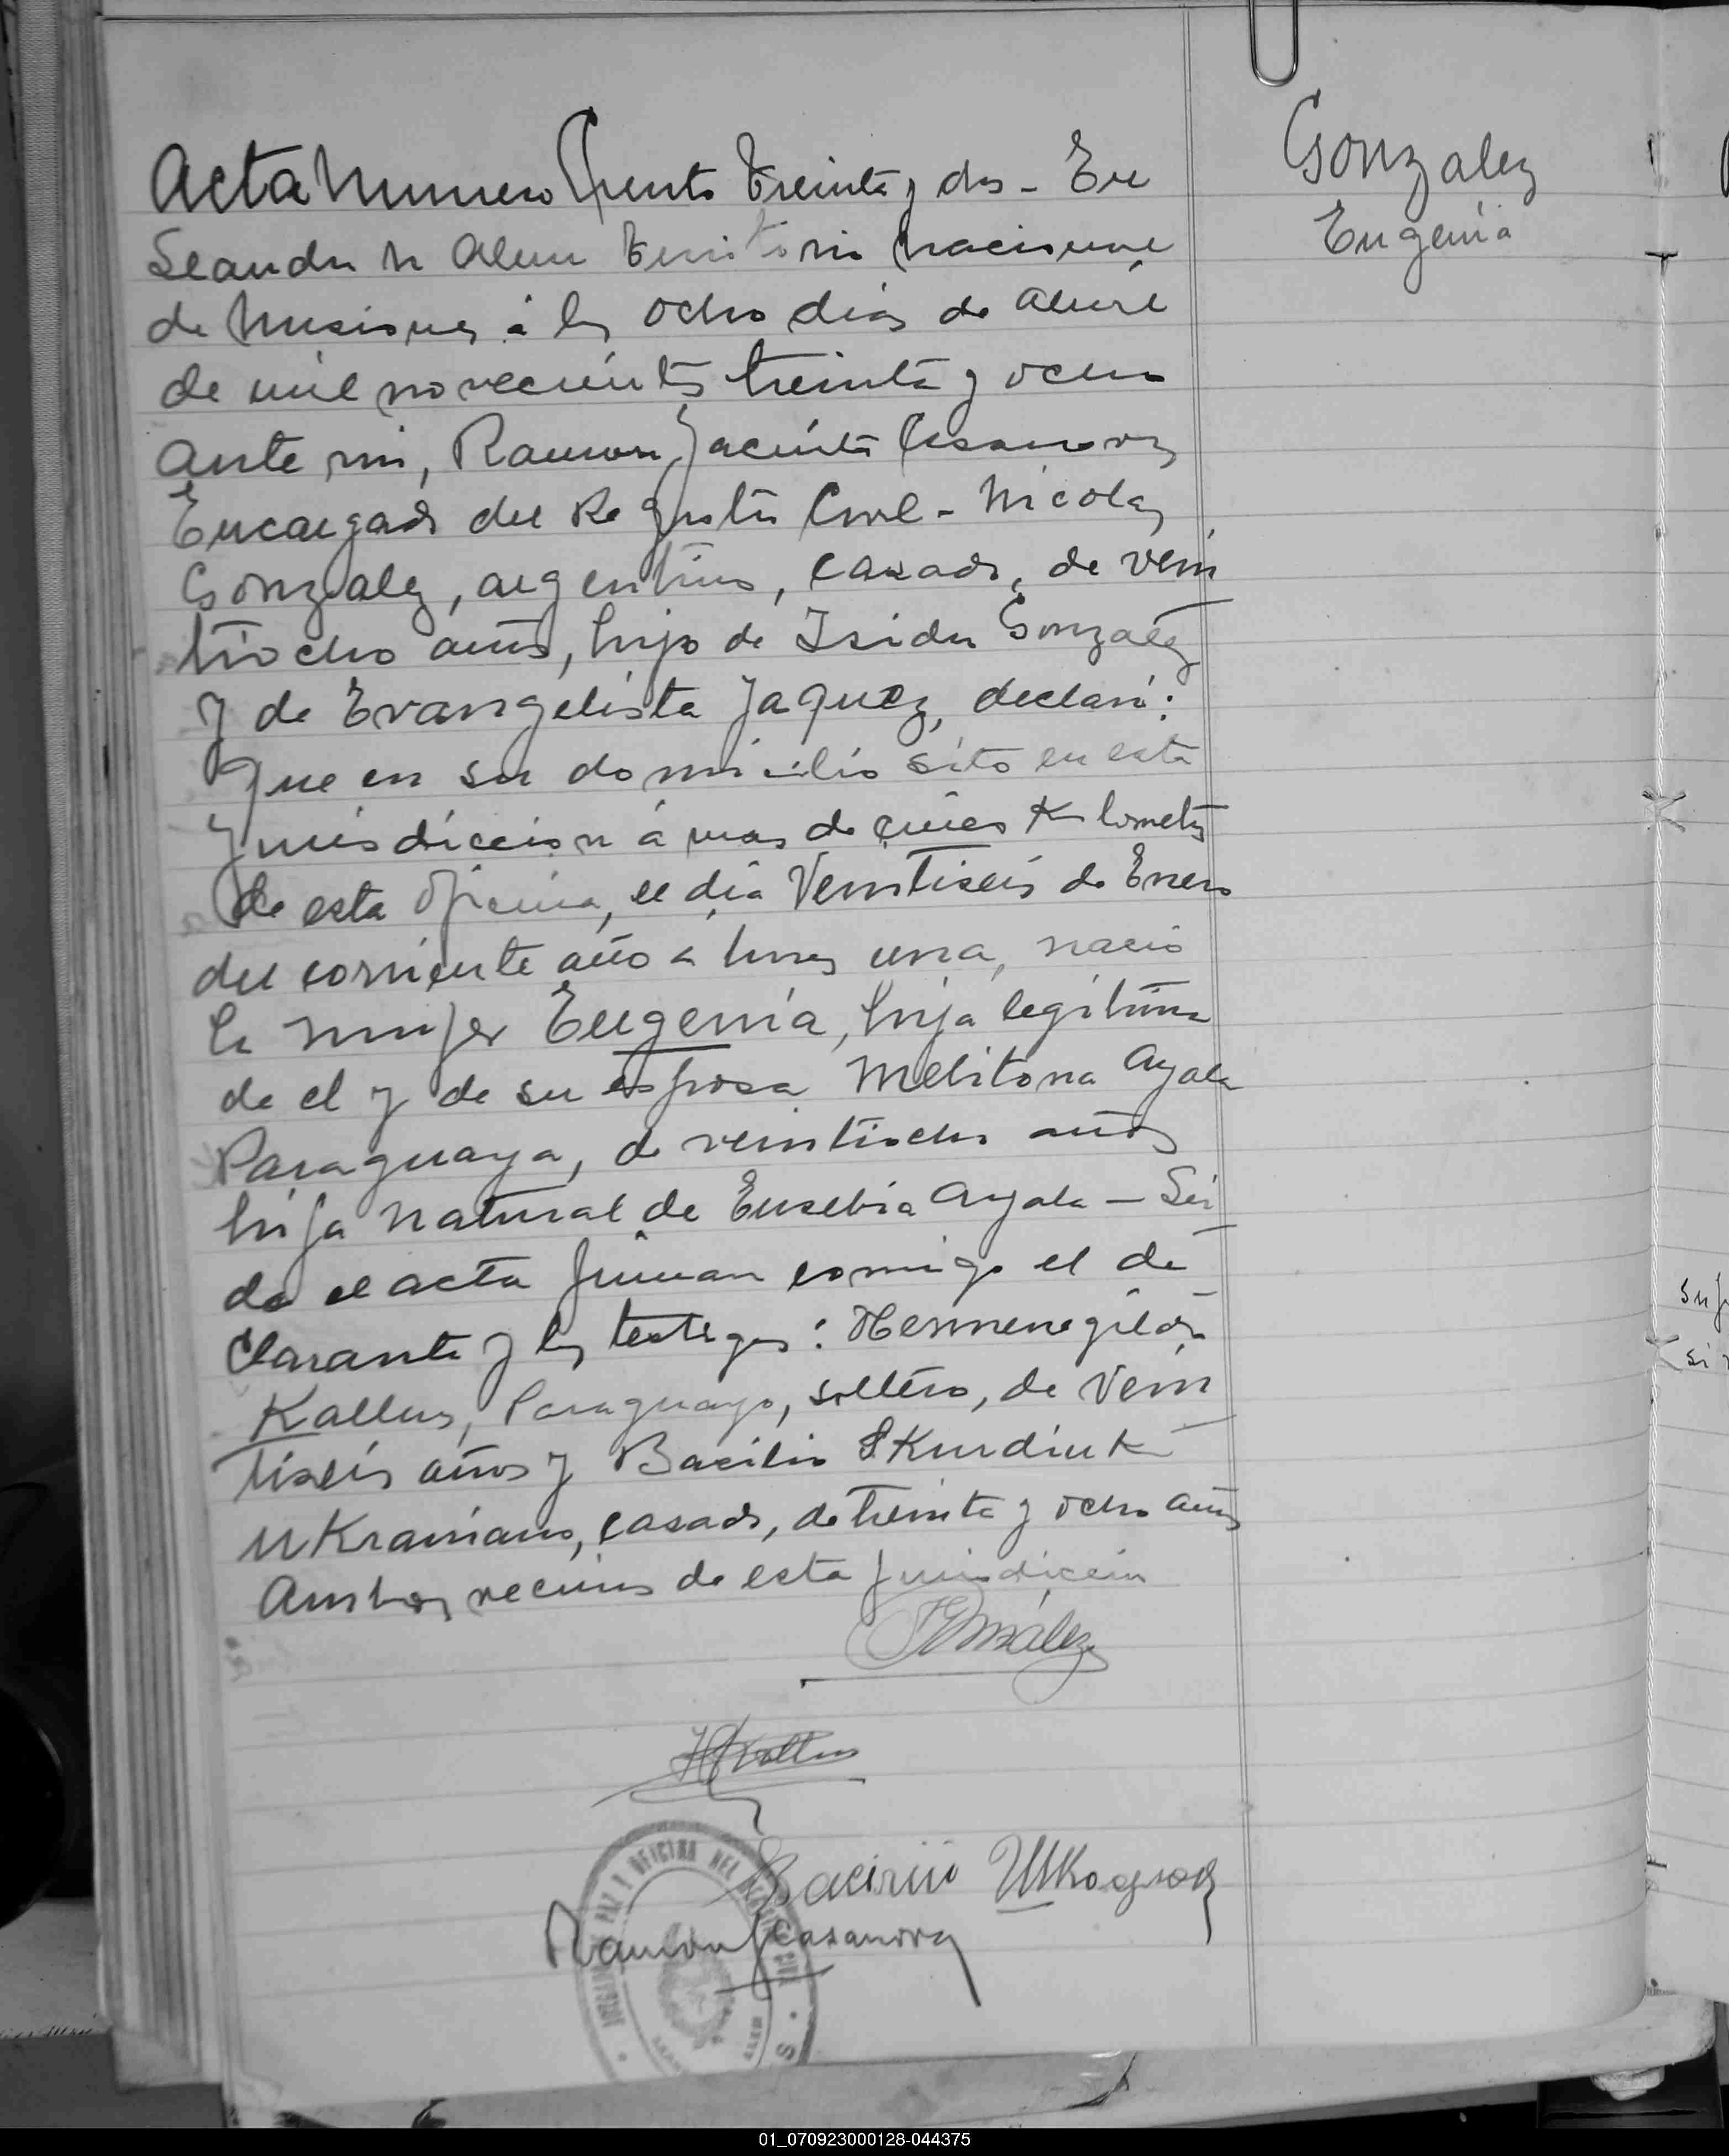 Acta Numero Ciento treinta y dos - En
Leandro N Alem territorio nacional
de Misiones á los ocho dias de Abril
de mil novecientos treinta y ocho
ante mi, Ramon Jacinto Casanova
Encargado del Registro Civil - Nicolas
Gonzalez, argentino, casado, de vein
tiocho años, hijo de Isidro Gonzalez
y de Evangelista Jaquez, declaró:
Que en su domicilio sito en esta
Jurisdiccion á mas de cinco Kilometros
de esta oficina, el dia Veintiseis de Enero
del corriente año a horas una, nació
la mujer Eugenia, hija legitima
de el y de su esposa Melitona Ayala
Paraguaya, de veintiocho años
hija natural de Eusebia Ayala - Lei
da el acta firman comigo el de
clarante y los testigos: Hermenegildo
Kallus, Paraguayo, soltero, de Vein
tiseis años y Basilio Skurdiuk
Ukraniano, casado, de treinta y ocho años
Ambos vecinos de esta jurisdiccion
Gonzalez
Eugenia
González
HKallus
Ramon J Casanova
PAZ Y OFICINA DEL REGISTRO CIVIL
01_070923000128-044375